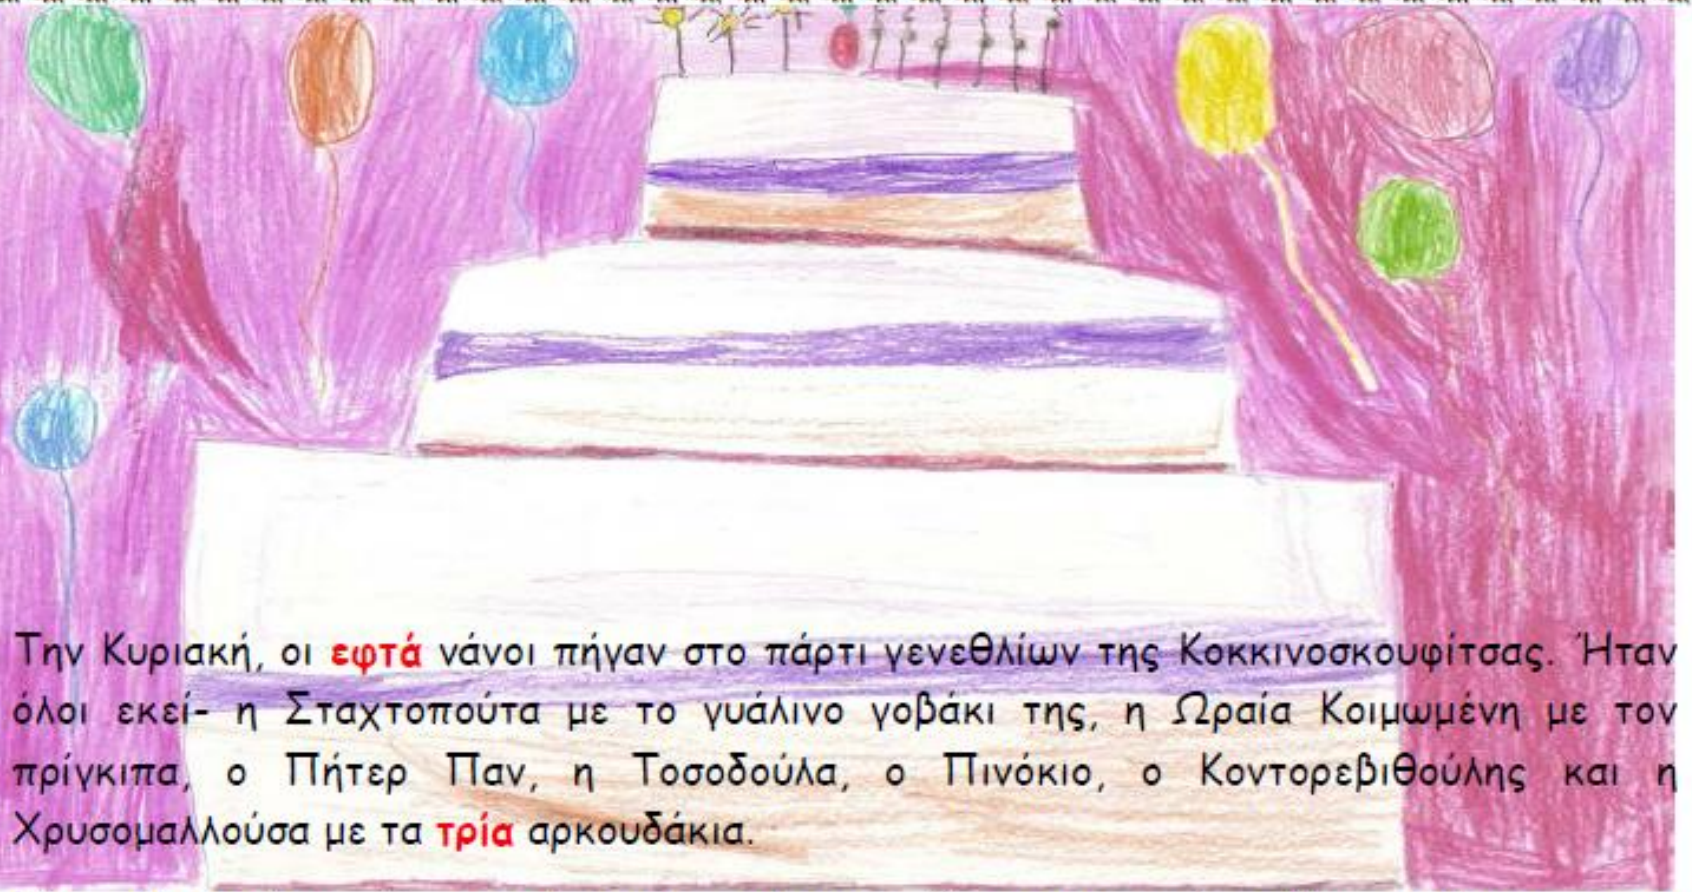 Την Κυριακή, οι εφτά νάνοι πήγαν στο πάρτι γενεθλίων της Κοκκινοσκουφίτσας. Ήταν
όλοι εκεί- η Σταχτοπούτα με το γυάλινο γοβάκι της, η Ωραία Κοιμωμένη με τον
πρίγκιπα, ο Πήτερ Παν, η Τοσοδούλα, ο Πινόκιο, ο Κοντορεβιθούλης και η
Χρυσομαλλούσα με τα τρία αρκουδάκια.